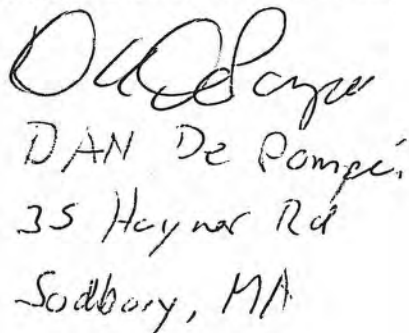 DAN De Pompei
35 Haynes Rd
Sudbury, MA